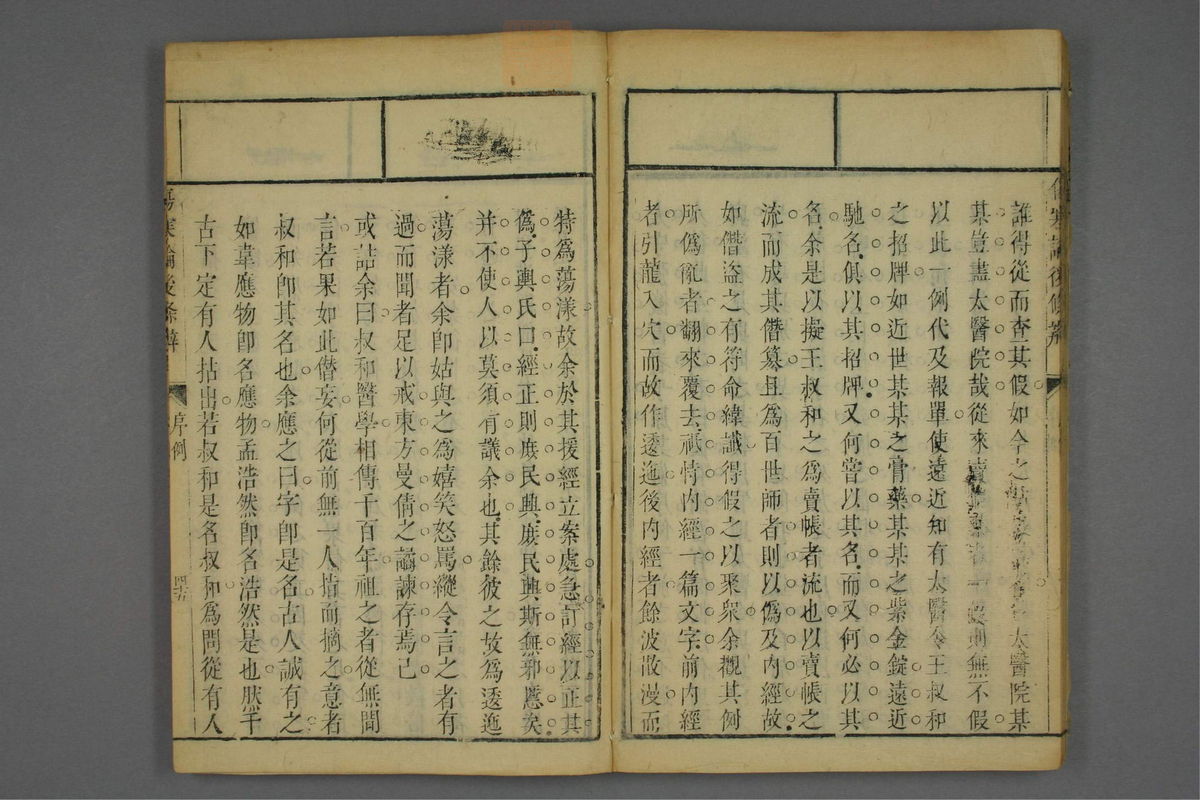 誰得從而查其假如今之太醫院某
某豈盡太醫院哉從來一無不假
以此一例代及報單使遠近知有太醫令王叔和
之招牌如近世某某之膏藥某某之紫金錠遠近
馳名俱以其招牌又何嘗以其名而又何必以其
名余是以擬王叔和之爲賣帳者流也以賣帳之
流而成其僭纂且爲百世師者則以僞及內經故
如僭盜之有符命緯讖得假之以聚衆余觀其例
所僞竄者翻來覆去祇恃內經一篇文字前內經
者引龍入穴而故作逶迤後內經者餘波散漫而
特爲蕩漾故余於其援經立案處急訂經以正其
僞子輿氏曰經正則庶民興庶民興斯無邪慝矣
并不使人以莫須有議余也其餘彼之故爲逶迤
蕩漾者余卽姑與之爲嬉笑怒罵縱令言之者有
過而聞者足以戒東方曼倩之譎諫存焉已
或詰余曰叔和醫學相傳千百年祖之者從無間
言若果如此僭妄何從前無一人指而摘之意者
叔和卽其名也余應之曰字卽是名古人誠有之
如韋應物卽名應物孟浩然卽名浩然是也然千
古下定有人拈出若叔和是名叔和爲問從有人
傷寒論後條辨
序例
四五